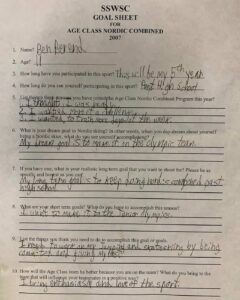 SSWSC
GOAL SHEET
FOR
AGE CLASS NORDIC COMBINED
2007
1. Name? Ben Berend
2. Age? 11
3. How long have you participated in this sport? This will be my 5th year.
4. How long have you participated in this sport?
5. List three reasons you joined the Age Class Nordic Combined Program this year?
1. I thought I was
2. I wanted more of a challenge
3. I wanted to train
6. What is your dream goal in Nordic skiing? In other words, when you day-dream about yourself
being a Nordic skier, what do you see yourself accomplishing?
My dream goal is to make it on the olympic team.
7. If you have one, what is your realistic long term goal that you want to shoot for? Please be as
specific and honest as you can.
My long term goal is to keep doing nordic combined past
high school.
8. What are your short term goals? What do you hope to accomplish this season?
I want to make it to the Junior Olympics.
9. List the things you think you need to do to accomplish this goal or goals.
I need to work on my jumping and skateskiing by being
committed and trying my best.
10. How will the Age Class team be better because you are on the team? What do you bring to the
team that will influence your teammates in a positive way?
I bring enthusiasm and love of the sport.